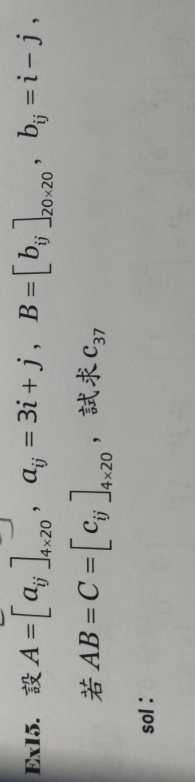 Ex15. 設 A = [a_{ij}]_{4×20}, a_{ij} = 3i + j, B = [b_{ij}]_{20×20}, b_{ij} = i − j,
若 AB = C = [c_{ij}]_{4×20}, 試求 c_{37}
sol: